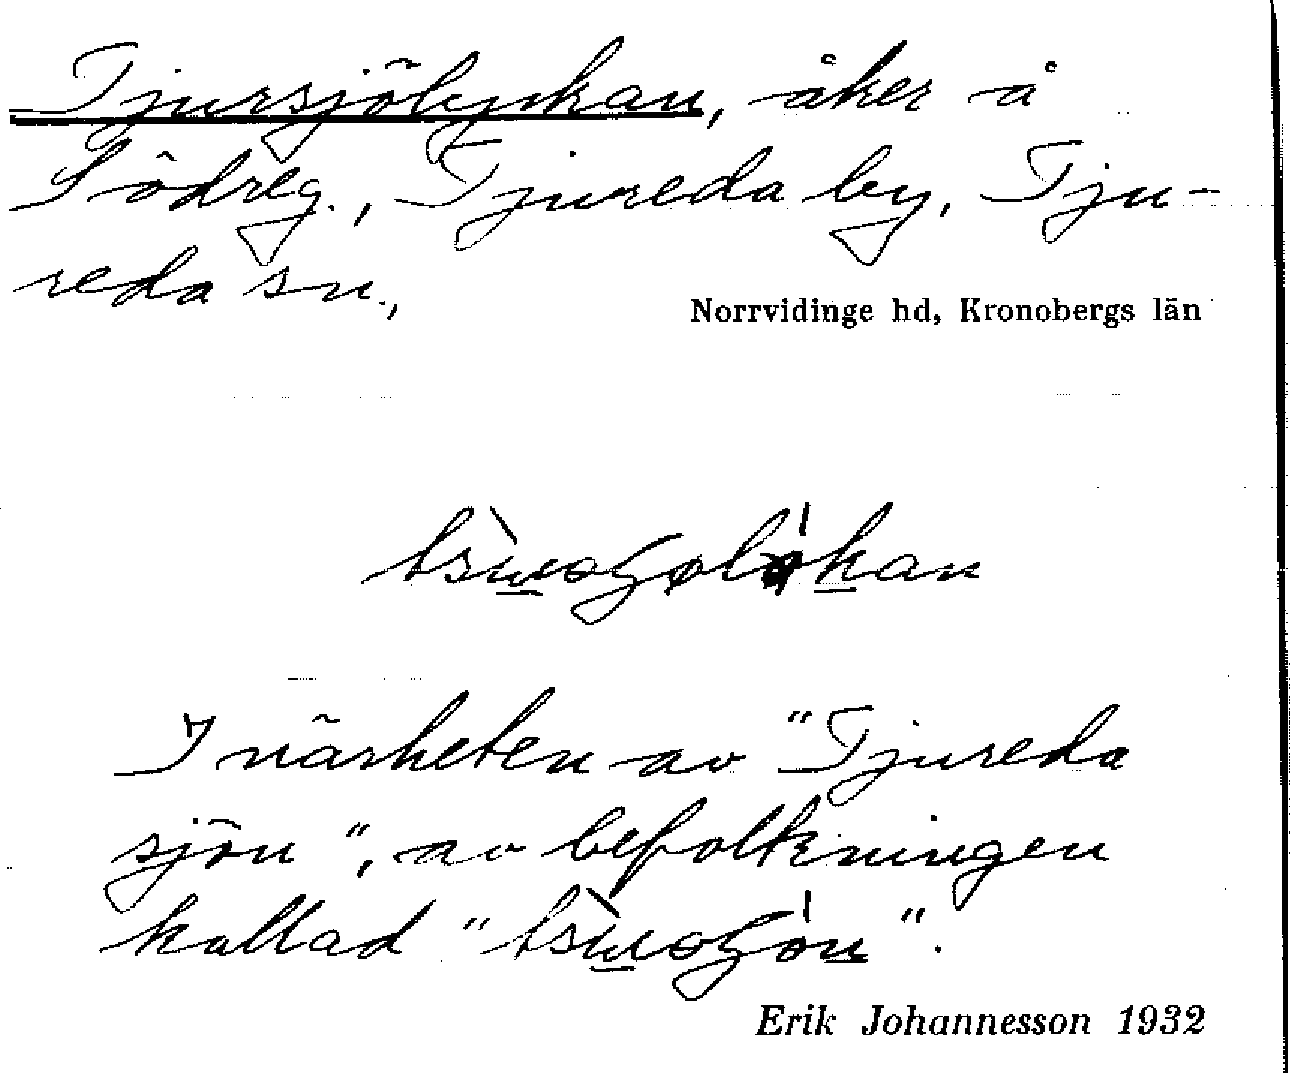 Tjursjölyckan, åker å
Södreg., Tjureda by, Tju-
reda sn.,
Norrvidinge hd, Kronobergs län
I närheten av "Tjureda
sjön", av befolkningen
kallad
Erik Johannesson 1932